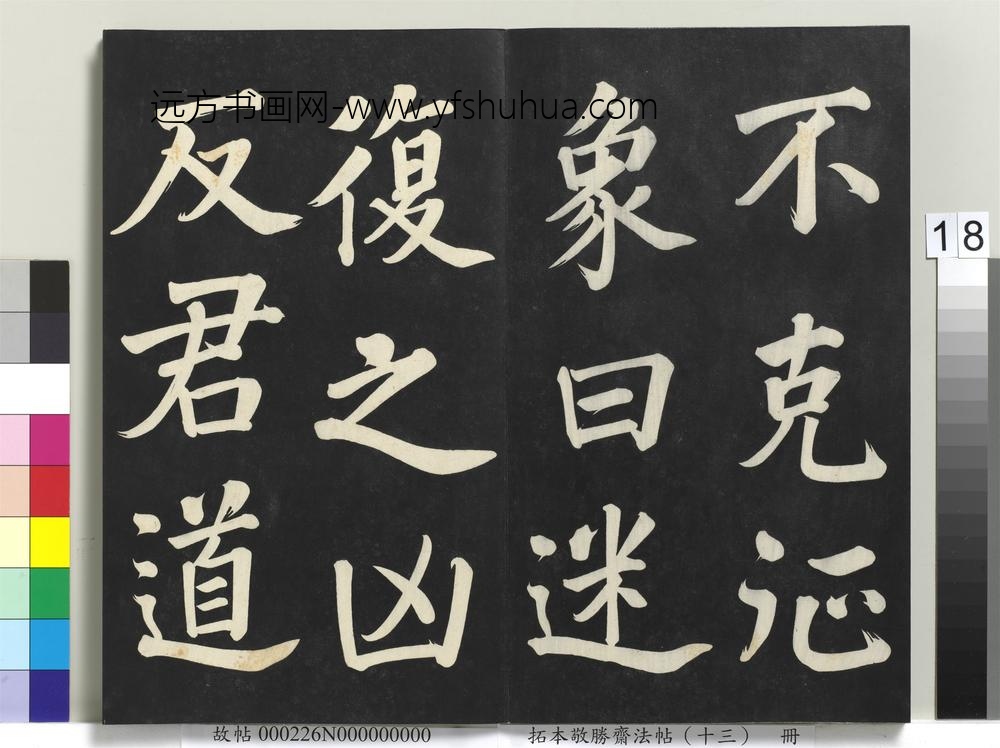 不克征
象曰迷
復之凶
反君道
远方书画网-www.yfshuhua.com
18
故帖 000226N000000000
拓本敬勝齋法帖（十三） 冊